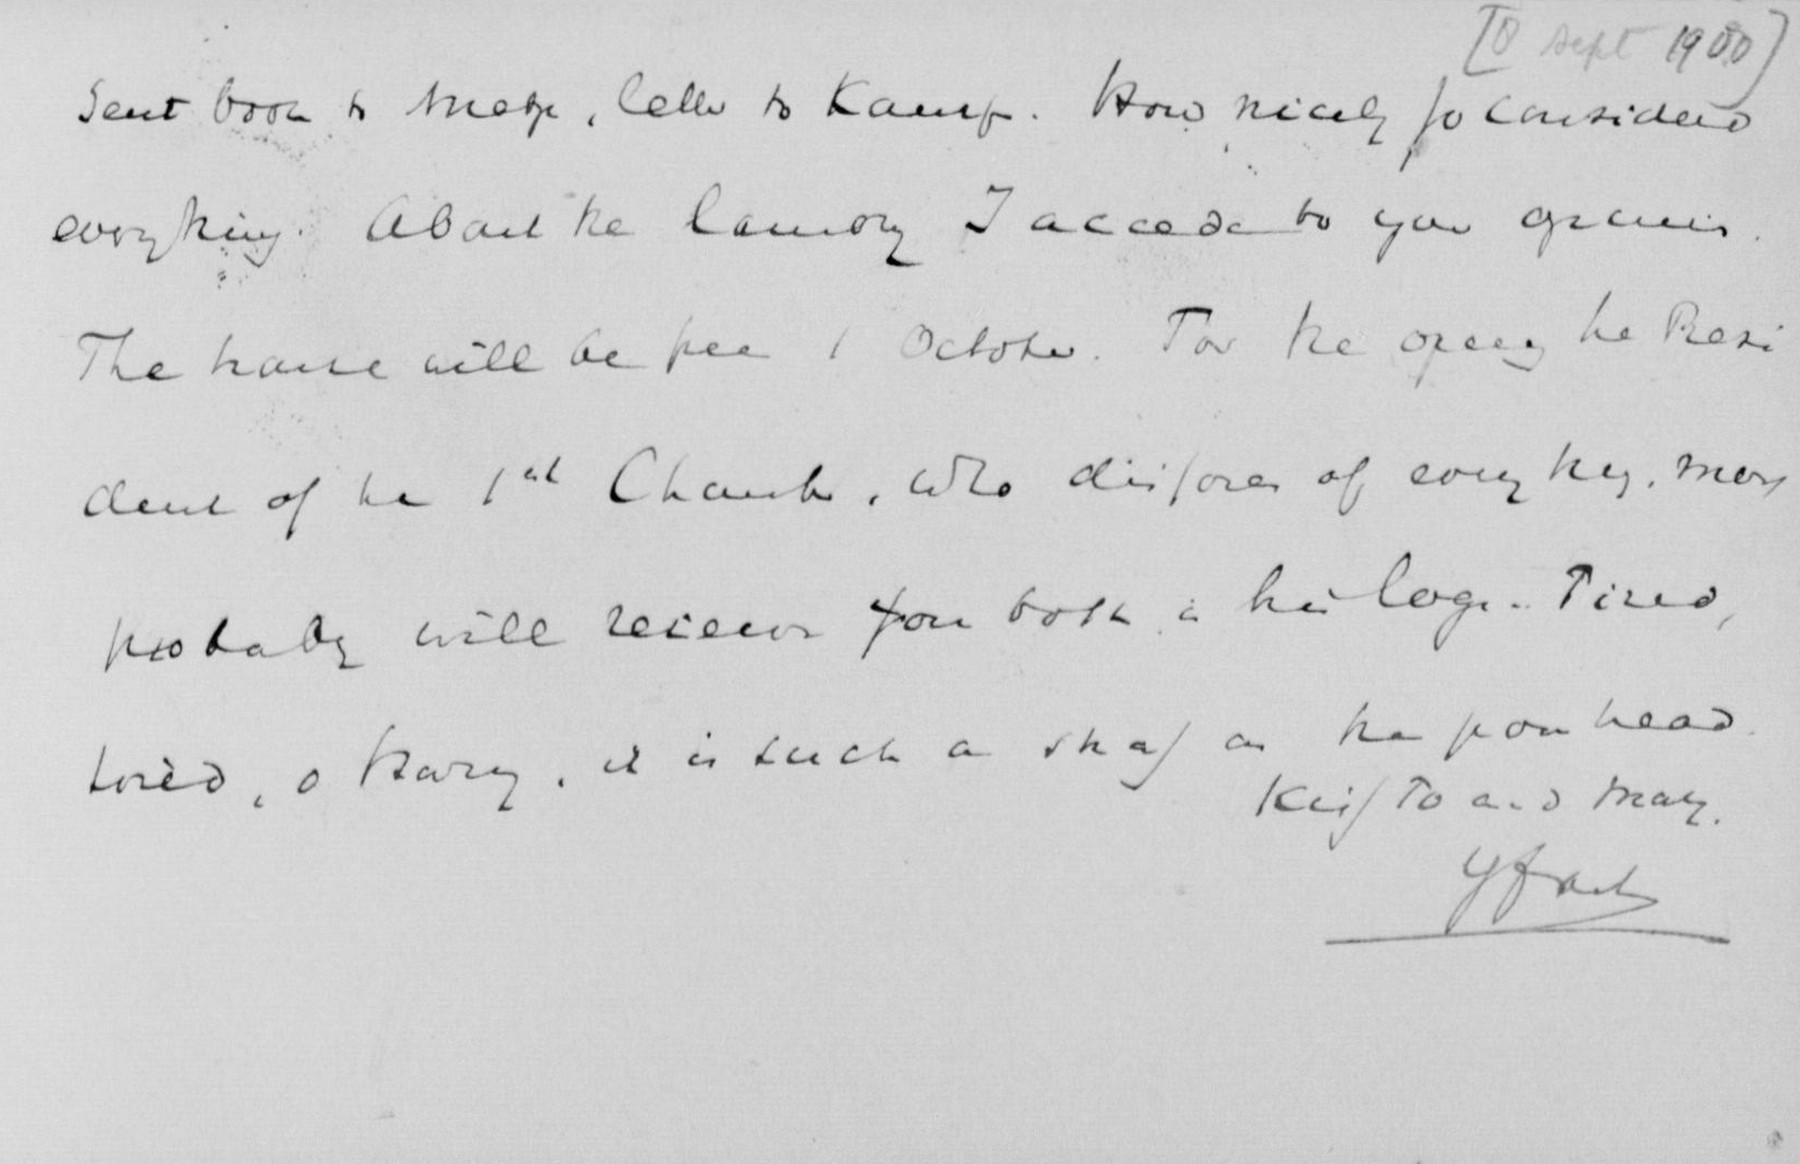 [8 Sept 1900]
Sent book to , letter to Kamp. How nicely Jo considered
everything. About the laundry I accede to your opinion.
The house will be free 1 October. For the opening the Presi
dent of the 1st Chamber, who disposes of everything, most
probably will receive you both in his loge. Tired,
tired, o Harry, it is such a shaft on the poor head.
Kiss To and May.